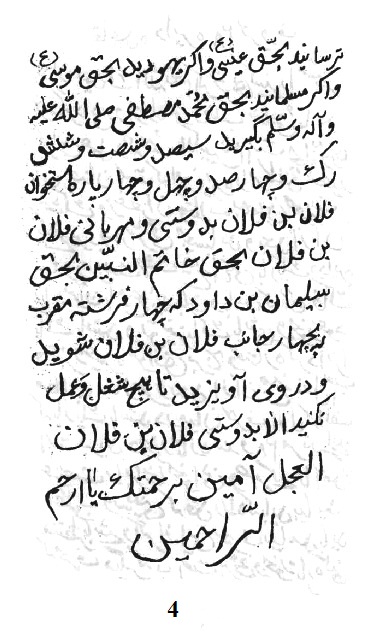 ترسانید بحق عیسی (ع) و اگر یهودید بحق موسی (ع)
و اگر مسلمانید بحق محمد مصطفی صلی الله علیه
و آله و سلم بگیرید سیصد و شصت و شش
رگ و چهار صد و چهل و چهار پاره استخوان
فلان بن فلان بدوستی و مهربانی فلان
بن فلان بحق خاتم النبیین بحق
سلیمان بن داود که چهار فرشته مقرب
بچهار جانب فلان بن فلان شوید
و در وی آویزید تا هیچ شغل و عمل
نکند الا بدوستی فلان بن فلان
العجل آمین برحمتک یا ارحم
الراحمین
4